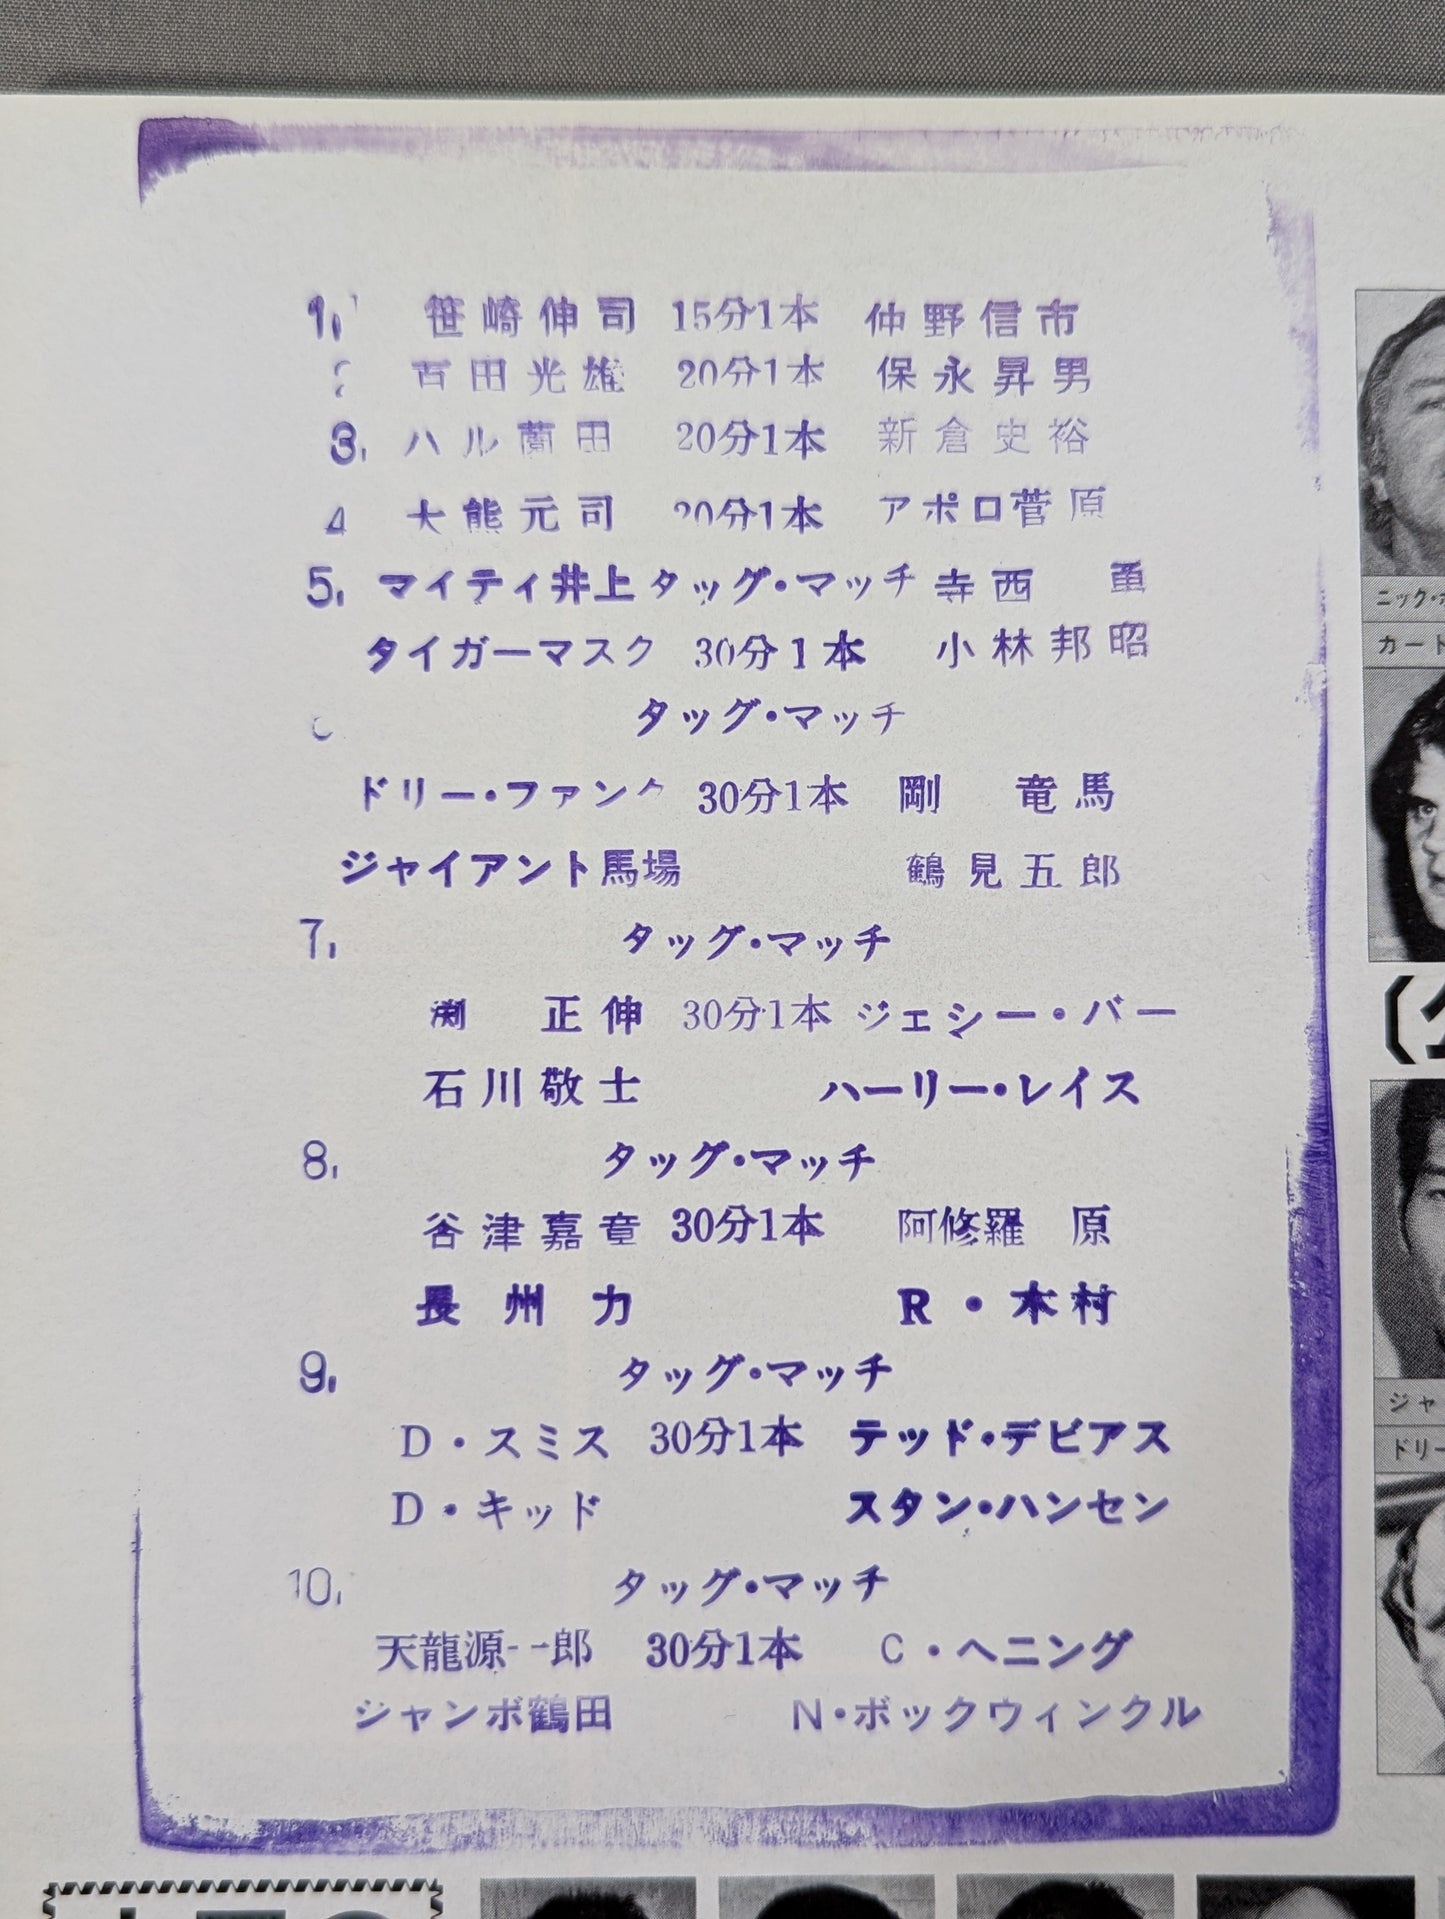 1. 笹崎伸司 15分1本 仲野信市
百田光雄 20分1本 保永昇男
3. ハル薗田 20分1本 新倉史裕
4 大熊元司 20分1本 アポロ菅原
5. マイティ井上 タッグ・マッチ 寺西 勇
タイガーマスク 30分1本 小林邦昭
タッグ・マッチ
ドリー・ファンク 30分1本 剛 竜馬
ジャイアント馬場 鶴見五郎
7. タッグ・マッチ
渕 正伸 30分1本 ジェシー・バー
石川敬士 ハーリー・レイス
8. タッグ・マッチ
谷津嘉章 30分1本 阿修羅 原
長州力 R・木村
9. タッグ・マッチ
D・スミス 30分1本 テッド・デビアス
D・キッド スタン・ハンセン
10. タッグ・マッチ
天龍源一郎 30分1本 C・ヘニング
ジャンボ鶴田 N・ボックウィンクル
ニック・
カート
ジャ
ドリー